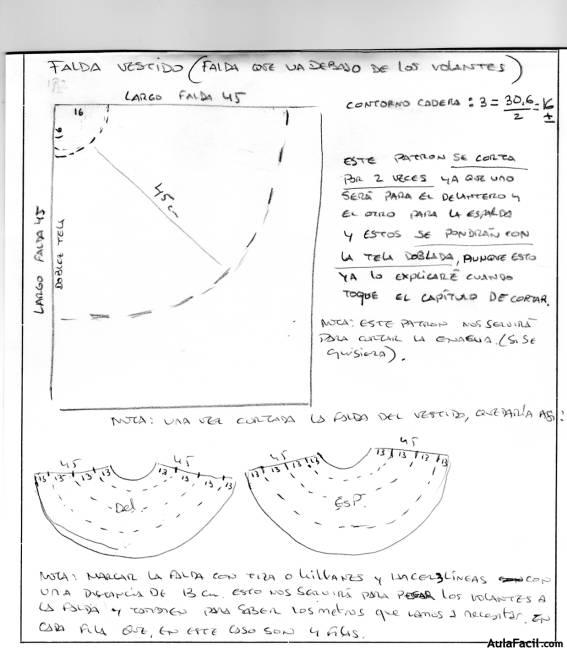 FALDA VESTIDO (FALDA QUE VA DEBAJO DE LOS VOLANTES)
LARGO FALDA 45
CONTORNO CADERA : 3 = 30,6 / 2 = 16 ±
16
16
45cm
LARGO FALDA 45
DOBLEZ TELA
ESTE PATRON SE CORTA
POR 2 VECES YA QUE UNO
SERÁ PARA EL DELANTERO Y
EL OTRO PARA LA ESPALDA
Y ESTOS SE PONDRÁN CON
LA TELA DOBLADA, AUNQUE ESTO
YA LO EXPLICARÉ CUANDO
TOQUE EL CAPÍTULO DE CORTAR.
NOTA: ESTE PATRON NOS SERVIRÁ
PARA CORTAR LA ENAGUA. (SI SE
QUISIERA).
NOTA: UNA VEZ CORTADA LA FALDA DEL VESTIDO, QUEDARÍA ASI:
45 45 45 45
13 13 13 13 13 13 13 13 13 13 13 13 13 13 13
Del. ESP.
NOTA: MARCAR LA FALDA CON TIZA O HILVANES Y HACER 3 LÍNEAS CON
UNA DISTANCIA DE 13 cm. ESTO NOS SERVIRÁ PARA PEGAR LOS VOLANTES A
LA FALDA Y TAMBIEN PARA SABER LOS METROS QUE VAMOS A NECESITAR, EN
CADA FILA QUE, EN ESTE CASO SON 4 FILAS.
AulaFacil.com